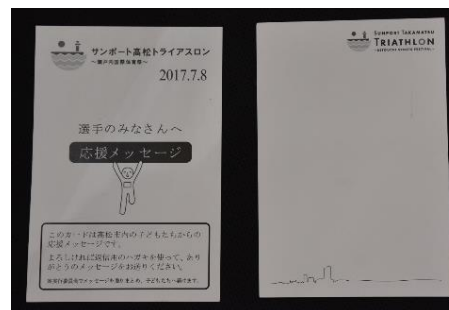 サンポート高松トライアスロン
～瀬戸内国際体育祭～
2017.7.8
選手のみなさんへ
応援メッセージ
このカードは高松市内の子どもたちからの
応援メッセージです。
よろしければ返信用のハガキを使って、あり
がとうのメッセージをお送りください。
SUNPORT TAKAMATSU
TRIATHLON